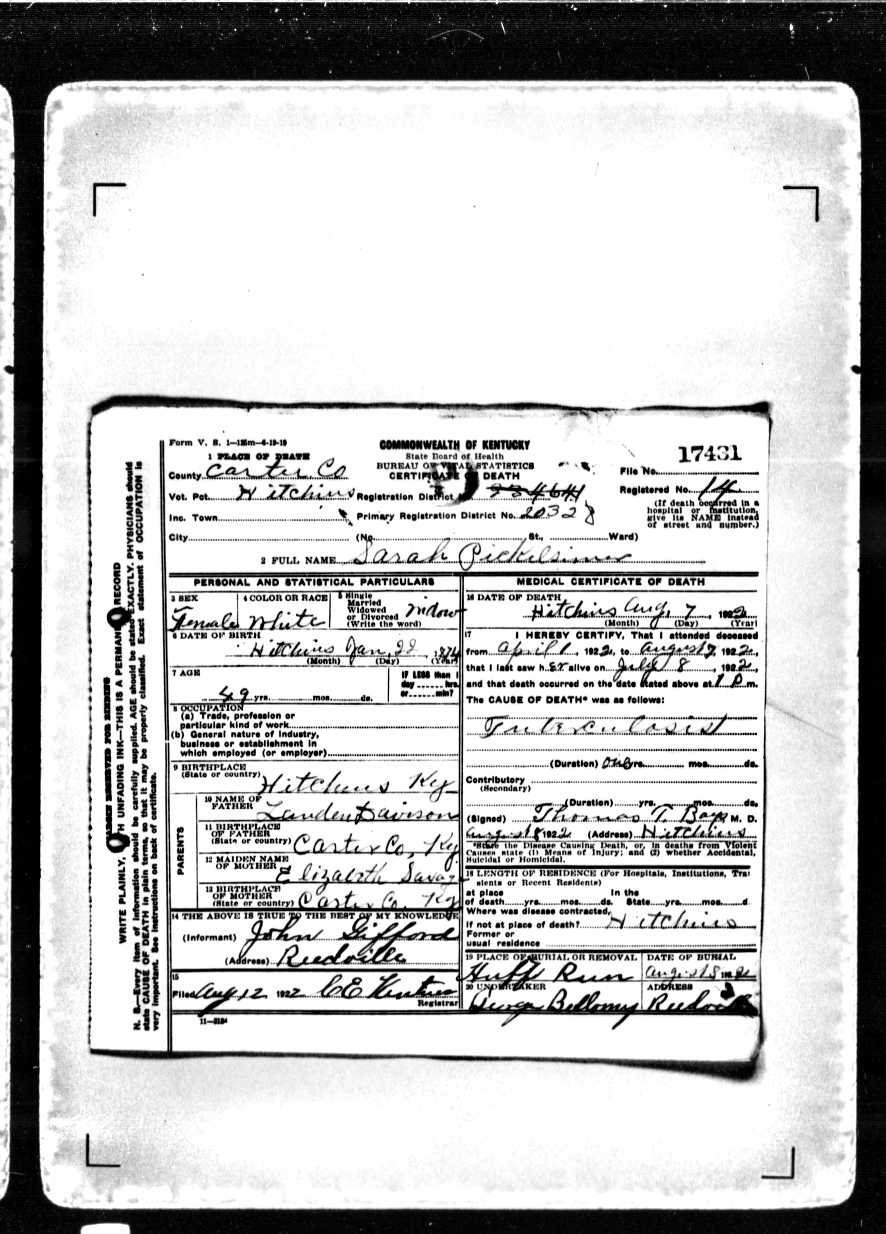 Form V. S. 1—125m—6-19-19
COMMONWEALTH OF KENTUCKY
State Board of Health
BUREAU OF VITAL STATISTICS
CERTIFICATE OF DEATH
17431
File No.
1 PLACE OF DEATH
County Carter Co
Registered No. 14
Vot. Pct. Hitchins Registration District
(If death occurred in a hospital or institution, give its NAME instead of street and number.)
Inc. Town Primary Registration District No. 20328
City (No. St., Ward)
2 FULL NAME Sarah Pickelsimer
PERSONAL AND STATISTICAL PARTICULARS
3 SEX
Female
4 COLOR OR RACE
White
5 Single
Married
Widowed
or Divorced
(Write the word)
Widow
6 DATE OF BIRTH
Hitchins Jan 22
(Month) (Day) (Year)
7 AGE
49 yrs. mos. ds.
IF LESS than 1
day hrs.
or min?
8 OCCUPATION
(a) Trade, profession or
particular kind of work
(b) General nature of Industry,
business or establishment in
which employed (or employer)
9 BIRTHPLACE
(State or country) Hitchins Ky
PARENTS
10 NAME OF
FATHER Landen Davison
11 BIRTHPLACE
OF FATHER
(State or country) Carter Co, Ky
12 MAIDEN NAME
OF MOTHER Elizabeth Savage
13 BIRTHPLACE
OF MOTHER
(State or country) Carter Co. Ky
14 THE ABOVE IS TRUE TO THE BEST OF MY KNOWLEDGE
(Informant) John Gifford
(Address) Reedville
15
Filed Aug 12 1922 C E
Registrar
11—3184
MEDICAL CERTIFICATE OF DEATH
16 DATE OF DEATH
Hitchins Aug, 7, 1922
(Month) (Day) (Year)
17 I HEREBY CERTIFY, That I attended deceased
from April 1, 1922, to August 7, 1922,
that I last saw her alive on July 8, 1922,
and that death occurred on the date stated above at 1 P m.
The CAUSE OF DEATH* was as follows:
Tuberculosis
(Duration) one yrs. mos. ds.
Contributory
(Secondary)
(Duration) yrs. mos. ds.
(Signed) Thomas T. M. D.
August 8 1922 (Address) Hitchins
*State the Disease Causing Death, or, in deaths from Violent
Causes state (1) Means of Injury; and (2) whether Accidental,
Suicidal or Homicidal.
18 LENGTH OF RESIDENCE (For Hospitals, Institutions, Tra
sients or Recent Residents)
at place In the
of death yrs. mos. ds. State yrs. mos. d
Where was disease contracted,
If not at place of death? Hitchins
Former or
usual residence
19 PLACE OF BURIAL OR REMOVAL
Huffs Run
DATE OF BURIAL
August 8 1922
20 UNDERTAKER
George Bellomy
ADDRESS
Reedville
MARGIN RESERVED FOR BINDING
WRITE PLAINLY, WITH UNFADING INK—THIS IS A PERMANENT RECORD
N. B.—Every item of information should be carefully supplied. AGE should be stated EXACTLY. PHYSICIANS should
state CAUSE OF DEATH in plain terms, so that it may be properly classified. Exact statement of OCCUPATION is
very important. See instructions on back of certificate.